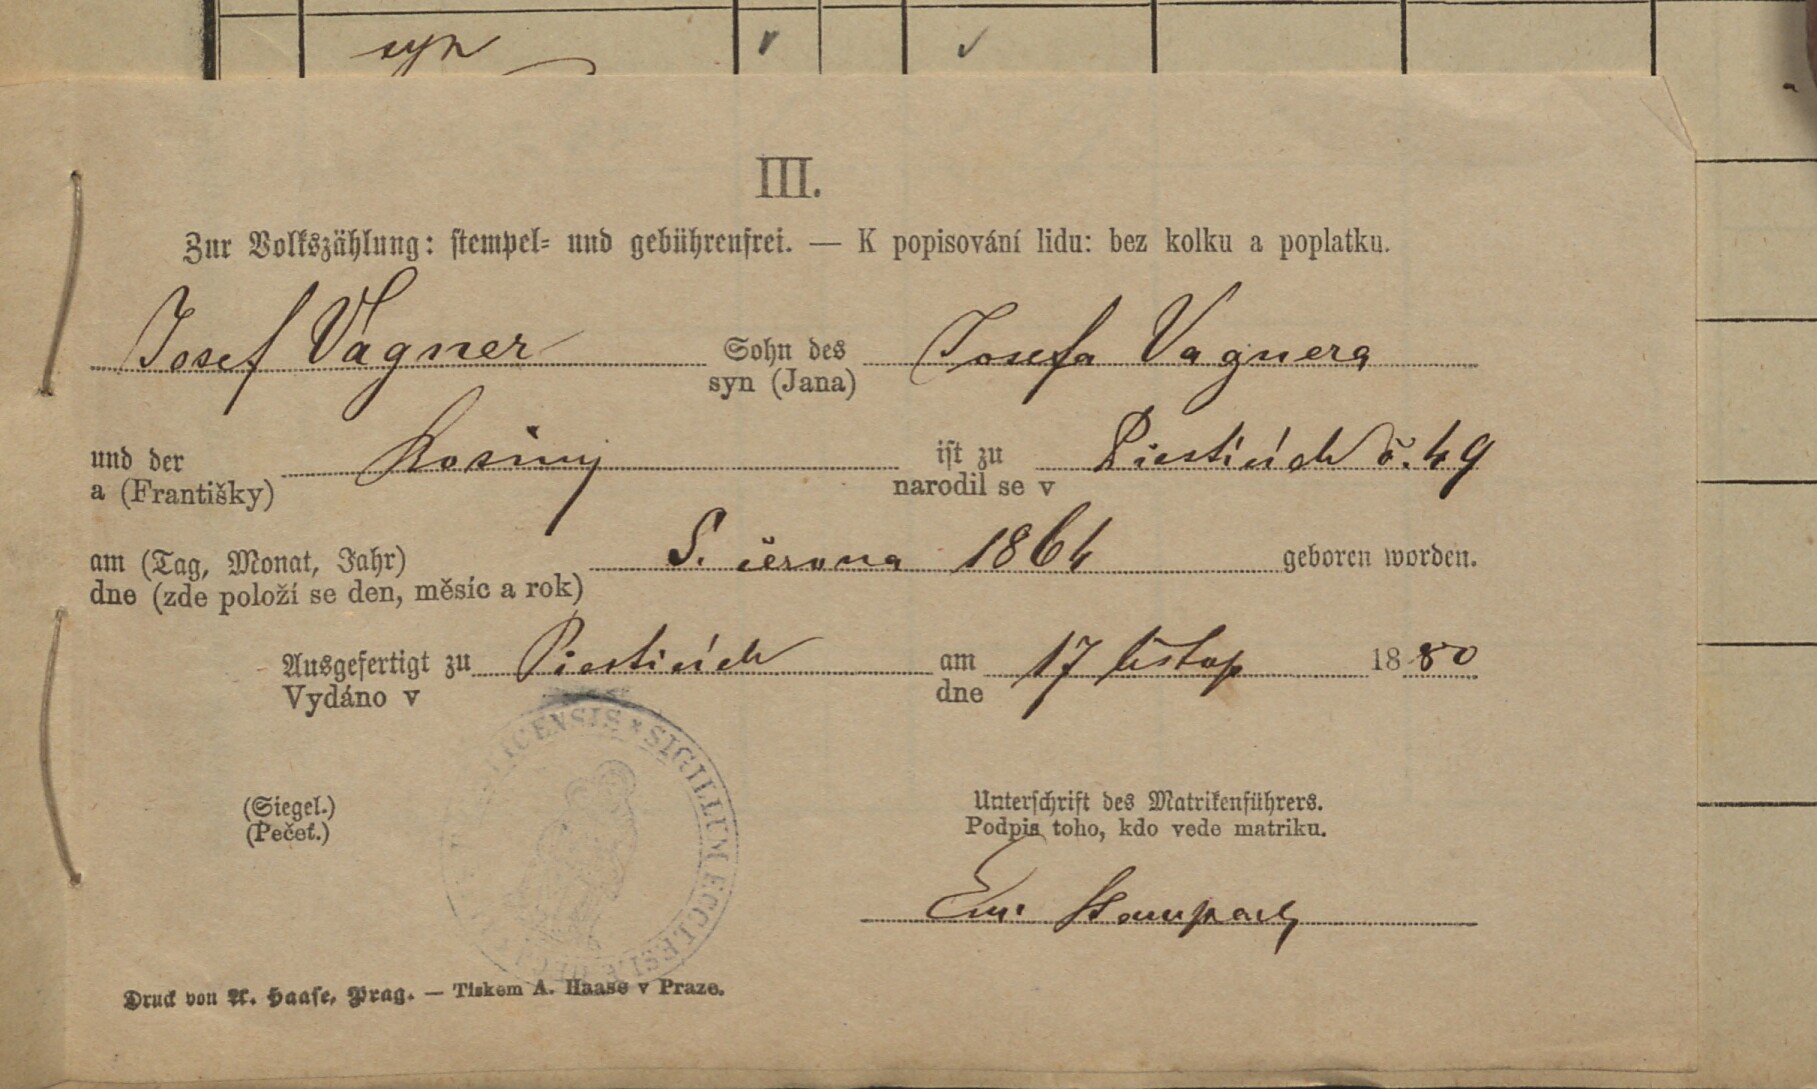 syn
III.
Zur Volkszählung: stempel- und gebührenfrei. — K popisování lidu: bez kolku a poplatku.
Josef Vagner Sohn des Josefa Vagnera
syn (Jana)
und der Rosiny ist zu Piesticích č. 49
a (Františky) narodil se v
am (Tag, Monat, Jahr) 5. června 1864 geboren worden.
dne (zde položí se den, měsíc a rok)
Ausgefertigt zu Piesticích am 17 listop 1880
Vydáno v dne
ICENSIS * SIGILLUM ECCLESIÆ
(Siegel.) Unterschrift des Matrikenführers.
(Pečeť.) Podpis toho, kdo vede matriku.
Em.
Druck von A. Haase, Prag. — Tiskem A. Haase v Praze.